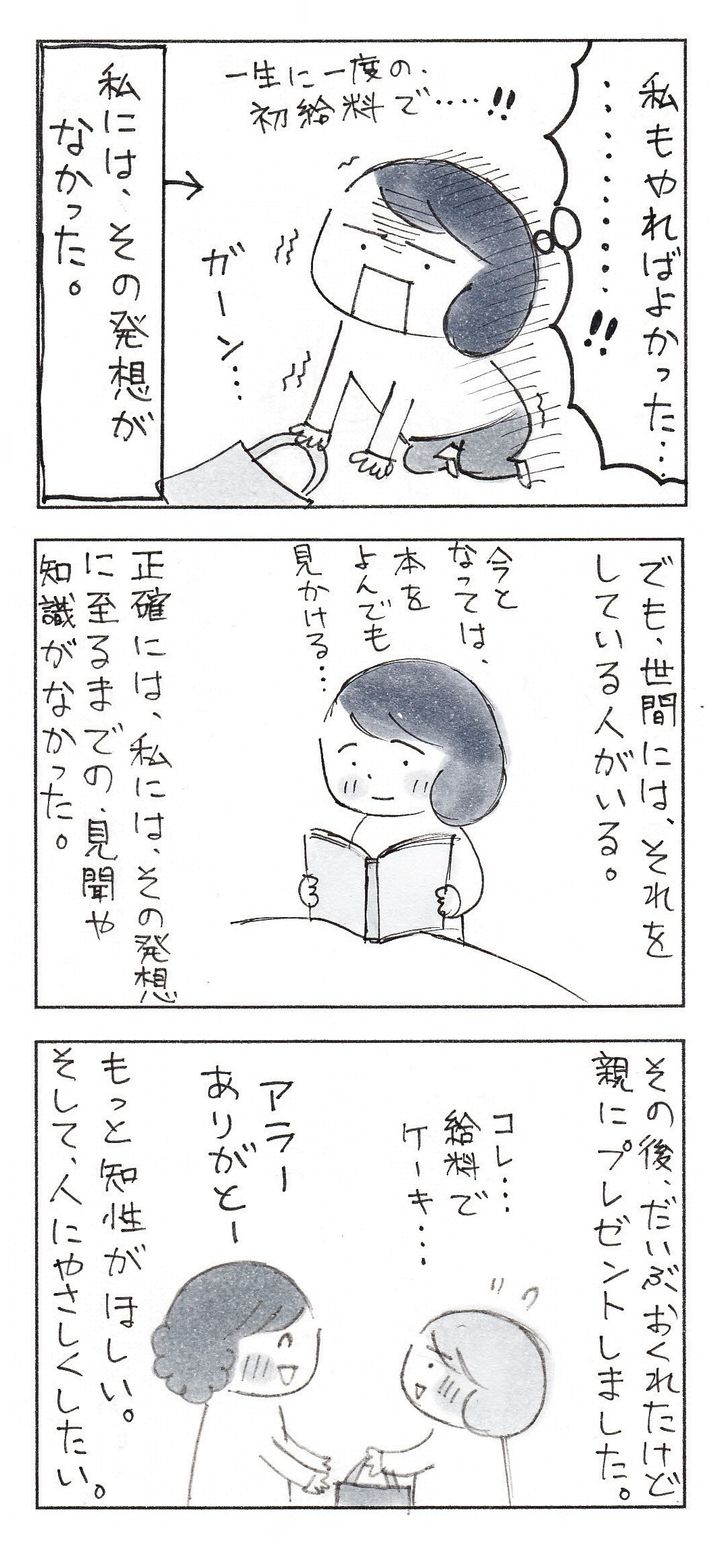 私もやればよかった…
…………!!
一生に一度の、
初給料で‥‥!!
ガーン…
私には、その発想が
なかった。
でも、世間には、それを
している人がいる。
今と
なっては、
本を
よんでも
見かける…
正確には、私には、その発想
に至るまでの、見聞や
知識がなかった。
その後、だいぶおくれたけど
親にプレゼントしました。
コレ…
給料で
ケーキ…
アラー
ありがとー
もっと知性がほしい。
そして、人にやさしくしたい。